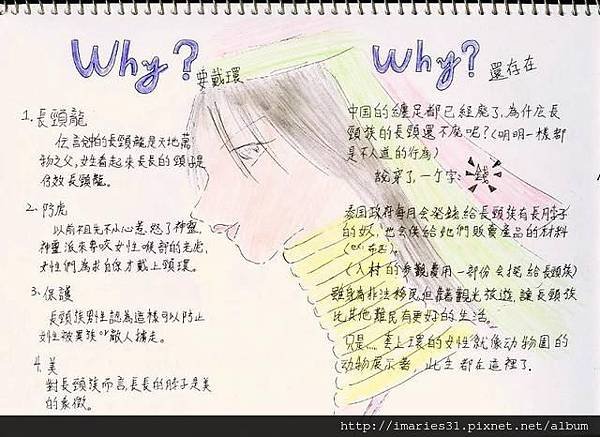 Why? 要戴環
1. 長頸龍
傳言她的長頸龍是天地萬
物之父,女性看起來長長的頸子是
仿效長頸龍。
2. 防虎
以前祖先不小心惹怒了神靈,
神靈派來專咬女性喉部的老虎,
女性們為求自保才戴上頸環。
3. 保護
長頸族男性認為這樣可以防止
女性被異族or敵人擄走。
4. 美
對長頸族而言,長長的脖子是美
的象徵。
Why? 還存在
中国的纏足都已經廢了,為什庅長
頸族的長頸還不廢呢?(明明一樣都
是不人道的行為)
說穿了,一个字: 錢
泰国政府每月会發錢給長頸族有長脖子
的女人,也会供給她們販賣產品的材料
(ex: 布匹)。
(入村的參觀費用一部份会撥給長頸族)
雖身為非法移民但靠觀光旅遊,讓長頸族
比其他難民有更好的生活。
只是……套上環的女性就像动物園的
动物展示者,此生都在這裡了.
http://imaries31.pixnet.net/album